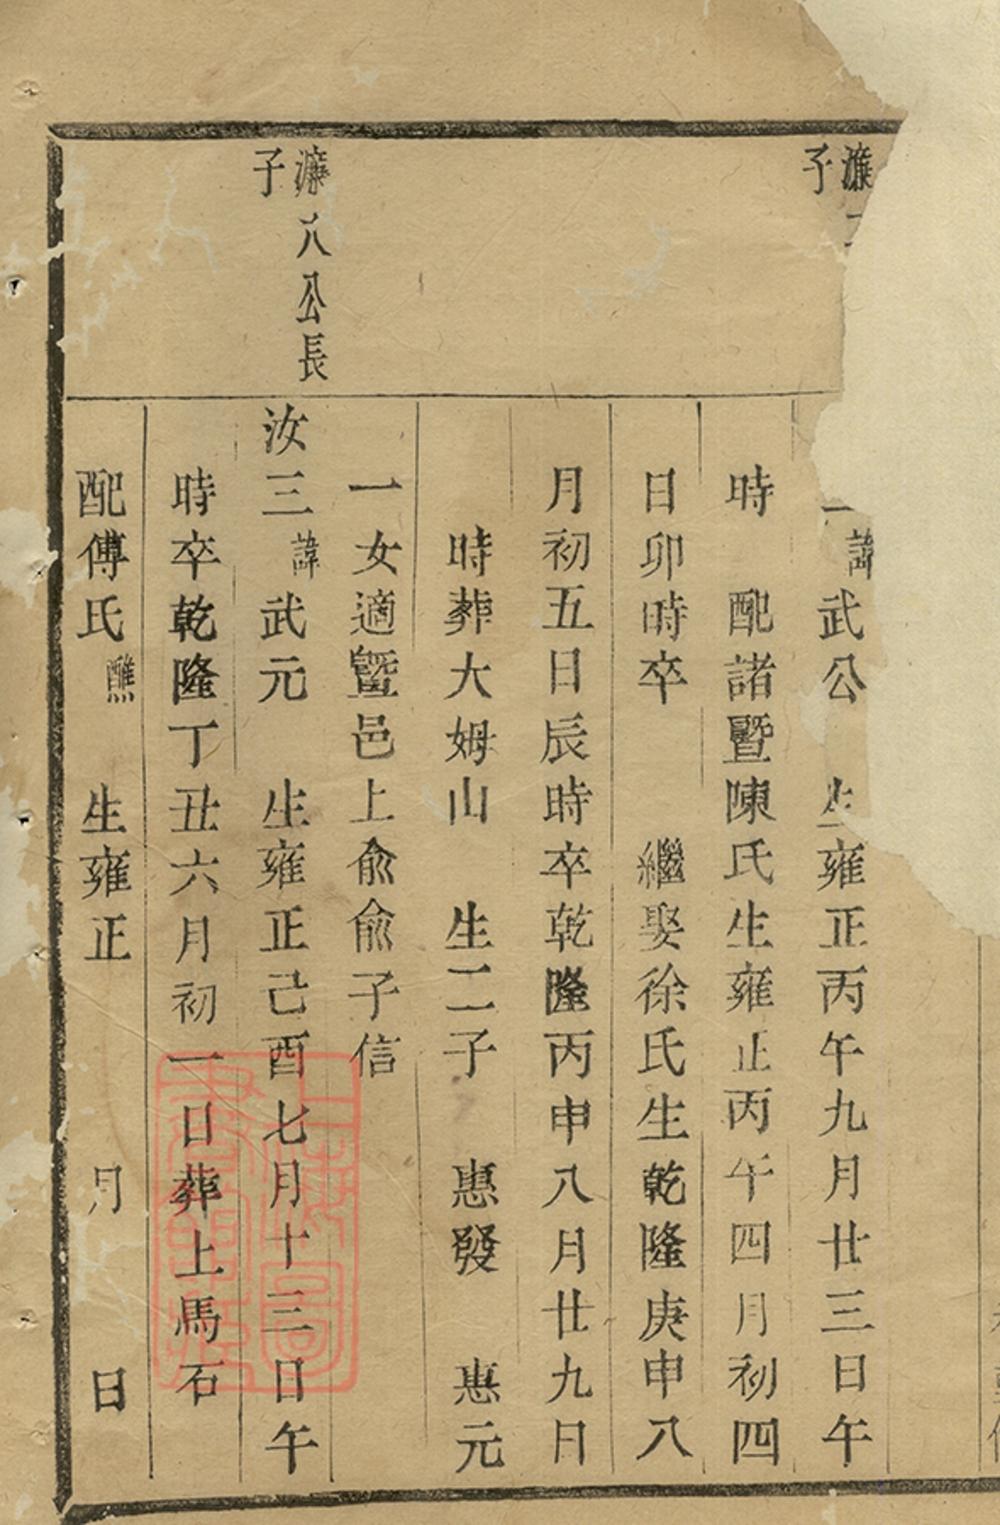 濂
子
諱武公 生雍正丙午九月廿三日午
時 配諸暨陳氏生雍正丙午四月初四
日卯時卒 繼娶徐氏生乾隆庚申八
月初五日辰時卒乾隆丙申八月廿九日
時葬大姆山 生二子 惠發 惠元
一女適暨邑上俞俞子信
濂八公長
子
汝三諱武元 生雍正己酉七月十三日午
時卒乾隆丁丑六月初一日葬上馬石
配傅氏醮 生雍正 月 日
上海圖
書館藏